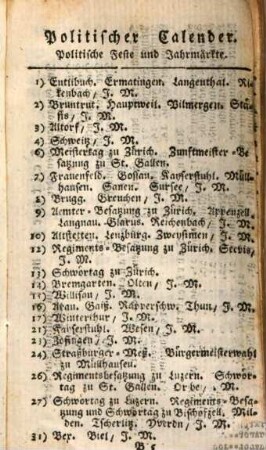 Politischer Calender.
Politische Feste und Jahrmärkte.
1) Entlibuch. Ermatingen. Langenthal. Ri-
kenbach, J. M.
2) Bruntrut. Hauptweil. Vilmergen. Stä-
fis, J. M.
3) Altorf, J. M.
4) Schweitz, J. M.
6) Meistertag zu Zürich. Zunftmeister-Be-
satzung zu St. Gallen.
7) Frauenfeld. Gossau. Kayserstuhl. Müll-
hausen. Sanen. Sursee, J. M.
8) Brugg. Grenchen, J. M.
9) Aemter-Besatzung zu Zürich. Appenzell.
Langnau. Glarus. Reichenbach, J. M.
10) Altstetten. Lenzburg. Zweysimen, J. M.
12) Regiments-Besatzung zu Zürich.
J. M.
13) Schwörtag zu Zürich.
14) Bremgarten. Olten, J. M.
15) Willisau, J. M.
16) Gaiß. Rapperschw. Thun, J. M.
17) Winterthur, J. M.
21) Kaiserstuhl. Wesen, J. M.
23) Zofingen, J. M.
24) Straßburger-Meß. Bürgermeisterwahl
zu Müllhausen.
26) Regimentsbesatzung zu Luzern. Schwör-
tag zu St. Gallen. Orbe, J. M.
27) Schwörtag zu Luzern. Regiments-Besa-
zung und Schwörtag zu Bischofzell. Mil-
den. Tscherlitz. Yverdn, J. M.
31) Bex. Biel, J. M.